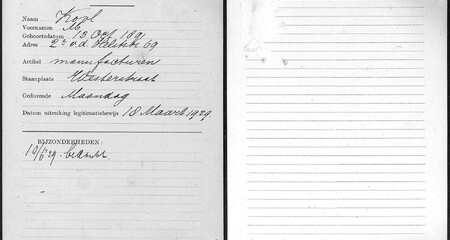 Naam Kool
Voornamen M.
Geboortedatum 18 Oct 1891
Adres 2e v.d. Helststr 69
Artikel manufacturen
Staanplaats Westerstraat
Gedurende Maandag
Datum uitreiking legitimatiebewijs 18 Maart 1929.
BIJZONDERHEDEN:
10/6 29